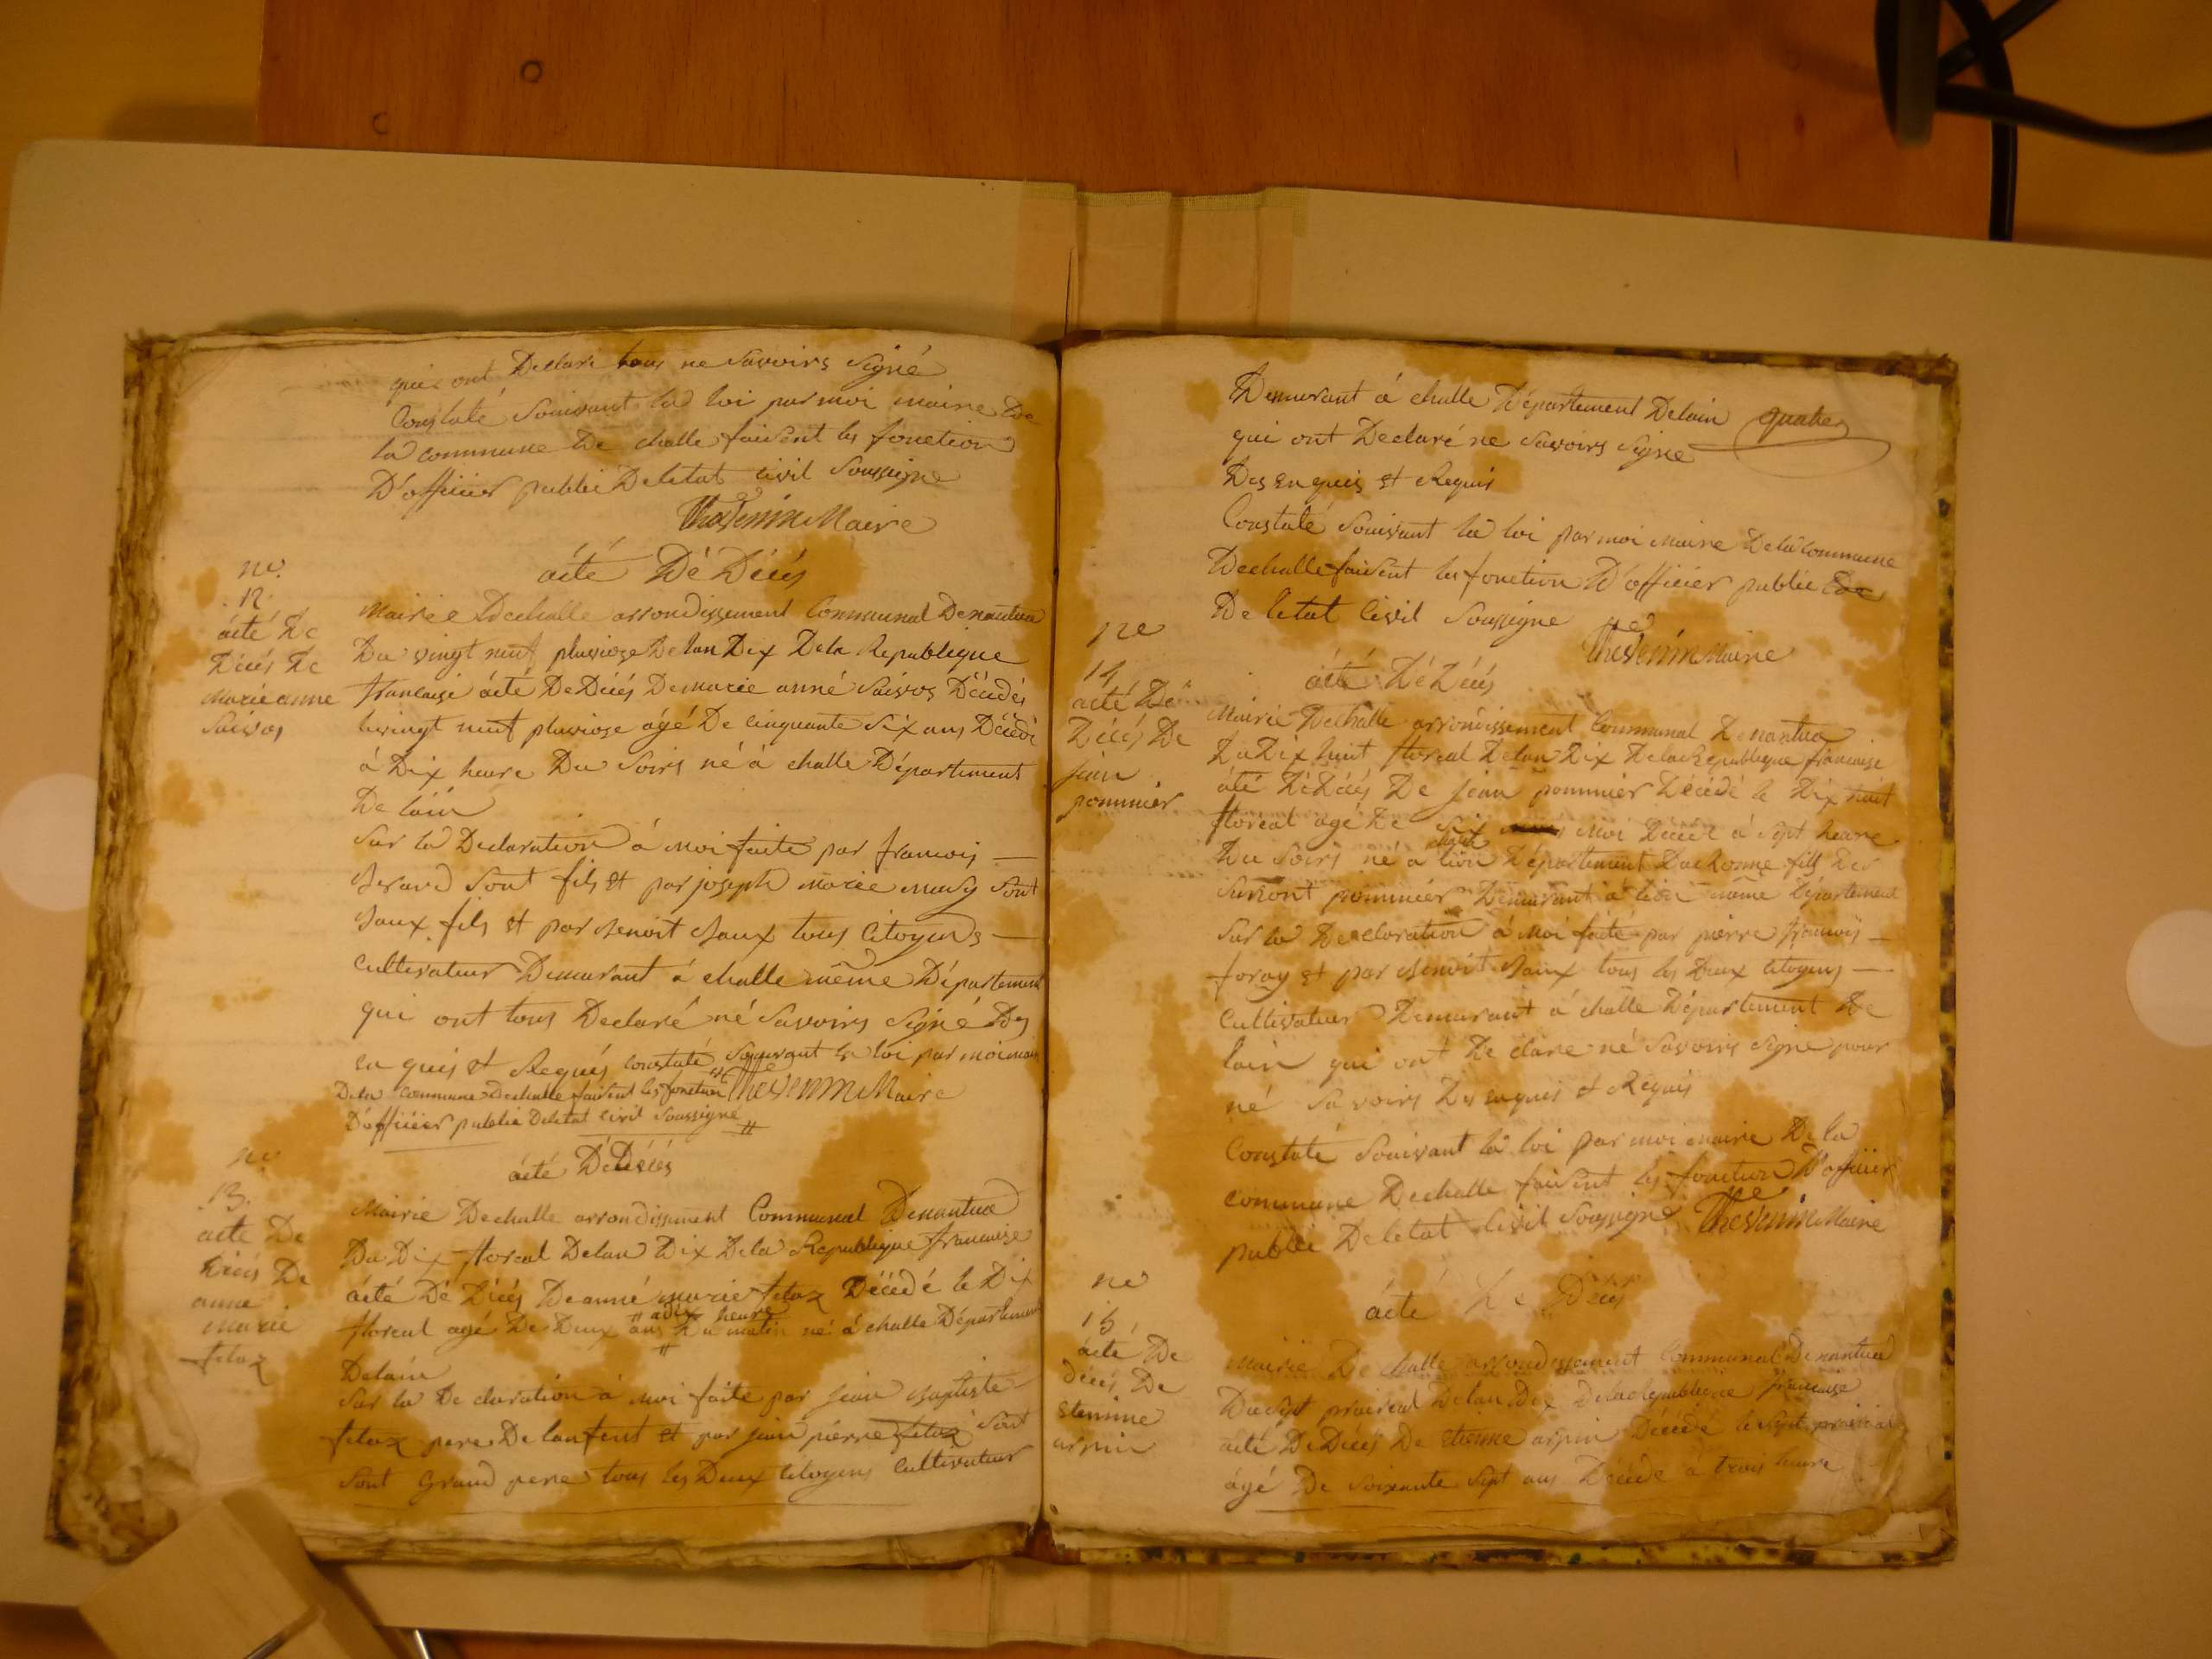 qui ont Declare tous ne Savoirs Signé
Constaté Souivant la loi par moi maire De
la commune De challe faisent les fonction
D'officier publié Deletat civil Soussigne
Thevenin Maire
acté Dé Décés
no
12
acté De
Décés De
marie anne
Saivos
Mairie Dechalle arrondissement Communal Denantua
Du vingt neuf pluviose Delan Dix Dela Republique
francaise acté De Décés De marie anné Saivos Décédés
levingt neuf pluviose agé De cinquante Six ans Décédé
á Dix heure Du Soirs né á challe Département
De lain
Sur la Declaration á moi faite par francois
Berard Sont fils et par joseph marie Sont
Baux fils et par Benoit Baux tous Citoyens
Cultivateur Demurant á challe même Département
qui ont tous Declaré né Savoirs Signé Des
en quis et Requis constaté Souivant la loi par moi maire
De la commune Dechalle faisent les fonction Thevenin Maire
D'officier publié Deletat civil Soussigne
acté Dé Décés
no
13
acte De
Décés De
anne
marie
felaz
Mairie Dechalle arrondissement Communal Denantua
Du Dix floreal Delan Dix Dela Republique francaise
acté Dé Décés De anné marie felaz Décédé le Dix
a dix heure
floreal agé De Deux ans Du matin né á challe Département
Delain
Sur la De claration á moi faite par jean Baptiste
felaz pere De lanfent et par jean pierre felaz Sont
Sont Grand pere tous les Deux Citoyens Cultivateur
Demurant á challe Département Delain quatre
qui ont Declaré ne Savoirs Signe
Des enquis et Requis
Constaté Souivant la loi par moi maire Dela Commune
Dechalle faisent les fonction D'officier publie De
De letat Civil Soussigne
Thevenin Maire
no
14
acté De
Décés De
jean
pommier
acté Dé Décés
Mairie Dechalle arrondissement Communal Denantua
Du Dix huit floreal Delan Dix Dela Republique francaise
acté Dé Décés De jean pommier Décédé le Dix huit
floreal agé De Six moi Décéde á Sept heure
Du Soirs né a lion Département Du Rhonne fils De
pommier Demurant á lion même Département
Sur la Declaration á moi faité par pierre francois
foray et par Benoit Baux tous les Deux Citoyens
Cultivateur Demurant á challe Département De
lain qui ont De clare né Savoirs Signe pour
né Savoirs Des enquis et Requis
Constaté Souivant la loi par moi maire De la
commune Dechalle faisent les fonction D'officier
publie De letat Civil Soussigne Thevenin Maire
no
15
acté De
décés De
etenine
arpin
acté De Décés
Mairie De challe arrondissement Communal Denantua
Du Sept praireal Delan Dix Dela Republique francaise
acté De Décés De etienne arpin Décédé le Sept prairial
ágé De Soixente Sept ans Décéde á trois heure